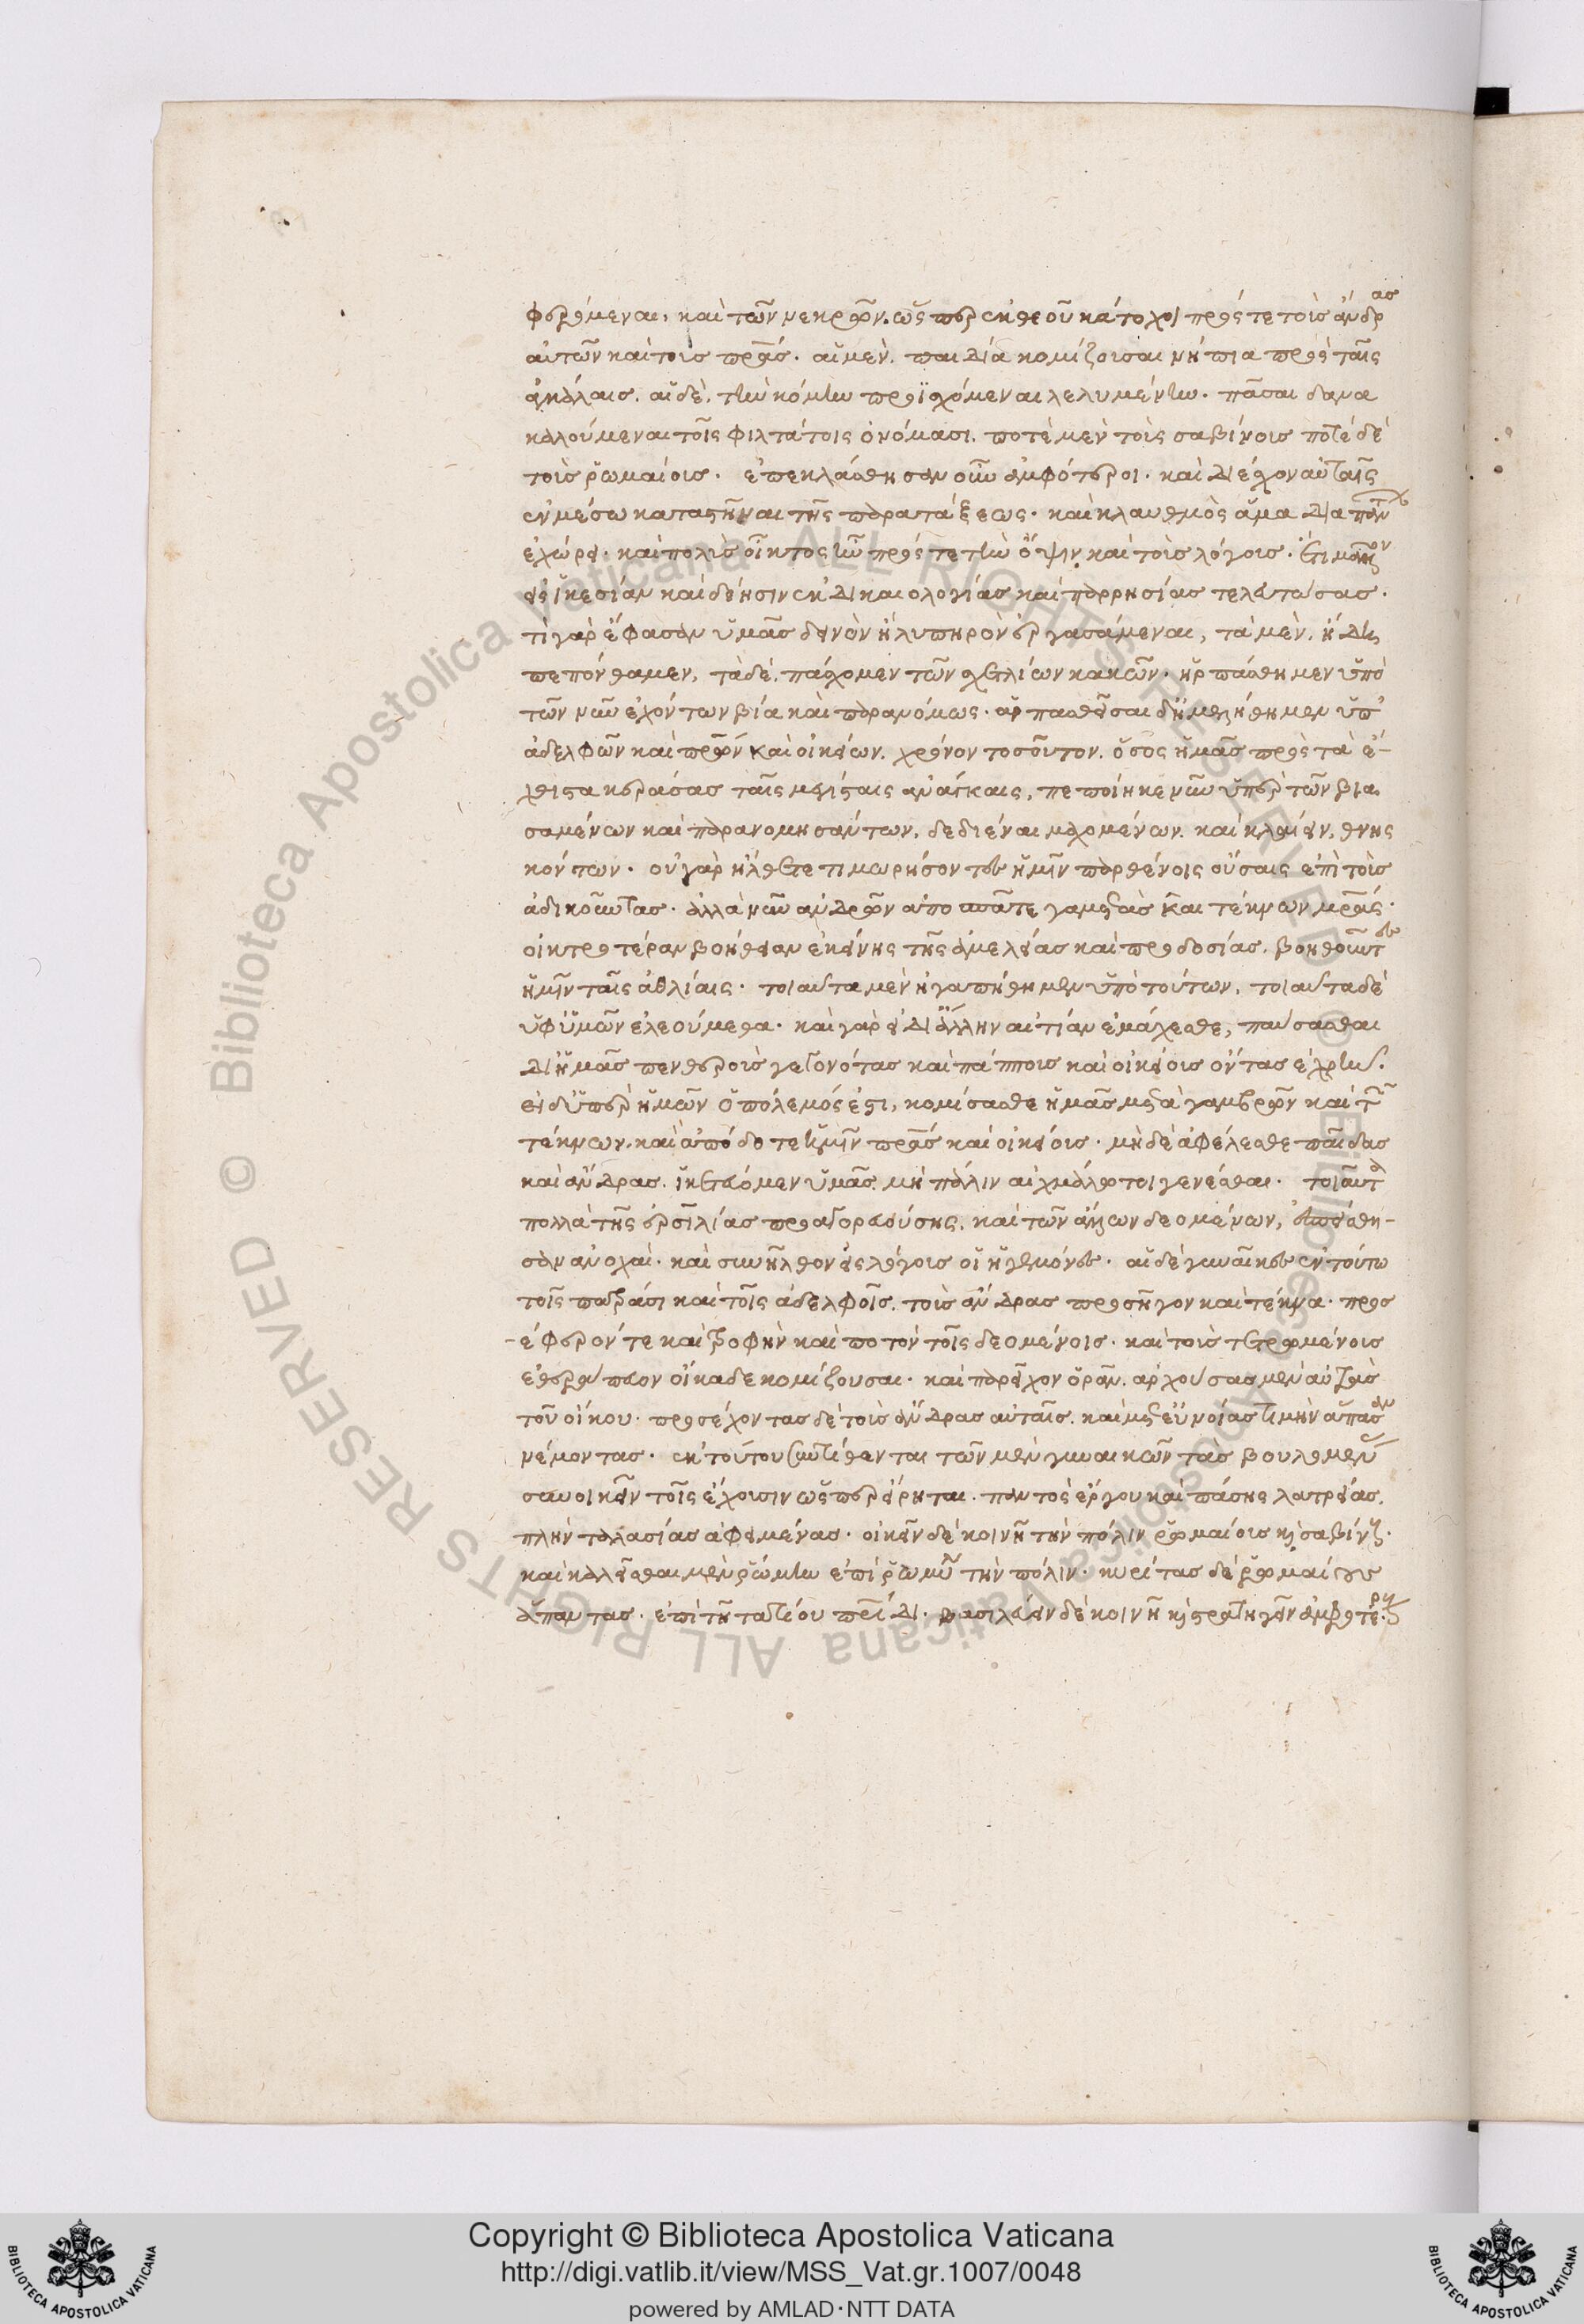 φερόμεναι, καὶ τῶν νεκρῶν. ὥσπερ ἐκ θεοῦ κάτοχοι πρός τε τοὺς ἄνδρας
αὐτῶν καὶ τοὺς πρας. αἱ μὲν. παιδία κομίζουσαι νήπια πρὸς ταῖς
ἀγκάλαις. αἱ δὲ. τὴν κόμην προϊσχόμεναι λελυμένην. πᾶσαι δ' ἀνα
καλούμεναι τοῖς φιλτάτοις ὀνόμασι. ποτὲ μὲν τοὺς σαβίνους ποτὲ δὲ
τοὺς ῥωμαίους. ἐπεκλάσθησαν οὖν ἀμφότεροι. καὶ διέσχον αὐταῖς
ἐν μέσω καταστῆναι τῆς παρατάξεως. καὶ κλαυθμὸς ἅμα διὰ πάντων
ἐχώρει. καὶ πολὺς οἶκτος ἦν πρός τε τὴν ὄψιν καὶ τοὺς λόγους. ἔτι μᾶλλον
εἰς ἱκεσίαν καὶ δέησιν ἐκ δικαιολογίας καὶ παρρησίας τελευτώσας.
τί γὰρ ἔφασαν ὑμᾶς δεινὸν ἢ λυπηρὸν ἐργασάμεναι, τὰ μὲν. ἤδη
πεπόνθαμεν, τὰ δὲ. πάσχομεν τῶν σχετλίων κακῶν. ἡρπάσθημεν ὑπὸ
τῶν νῦν ἐχόντων βία καὶ παρανόμως. ἁρπασθεῖσαι δ' ἠμελήθημεν ὑπ'
ἀδελφῶν καὶ πρων καὶ οἰκείων. χρόνον τοσοῦτον. ὅσος ἡμᾶς πρὸς τὰ ἔ-
χθιστα κεράσας ταῖς μεγίσταις ἀνάγκαις, πεποίηκε νῦν ὑπὲρ τῶν βια
σαμένων καὶ παρανομησάντων. δεδιέναι μαχομένων. καὶ κλαίειν. θνης
κόντων. οὐ γὰρ ἤλθετε τιμωρήσοντες ἡμῖν παρθένοις οὔσαις ἐπὶ τοὺς
ἀδικοῦντας. ἀλλὰ νῦν ἀνδρῶν ἀποσπᾶτε γαμετὰς καὶ τέκνων μρας.
οἰκτροτέραν βοήθειαν ἐκείνης τῆς ἀμελείας καὶ προδοσίας. βοηθοῦντες
ἡμῖν ταῖς ἀθλίαις. τοιαῦτα μὲν ἠγαπήθημεν ὑπὸ τούτων. τοιαῦτα δὲ
ὑφ' ὑμῶν ἐλεούμεθα. καὶ γὰρ εἰ δι' ἄλλην αἰτίαν ἐμάχεσθε, παύσασθαι
δι' ἡμᾶς πενθεροὺς γεγονότας καὶ πάππους καὶ οἰκείους ὄντας ἐχρῆν.
εἰ δ' ὑπὲρ ἡμῶν ὁ πόλεμός ἐστι, κομίσασθε ἡμᾶς μετὰ γαμβρῶν καὶ τῶν
τέκνων. καὶ ἀπόδοτε ἡμῖν πρας καὶ οἰκείους. μὴ δὲ ἀφέλεσθε παῖδας
καὶ ἄνδρας. ἱκετεύομεν ὑμᾶς. μὴ πάλιν αἰχμάλωτοι γενέσθαι. τοιαῦτα
πολλὰ τῆς ἑρσιλίας προαγορευούσης. καὶ τῶν ἄλλων δεομένων, ἐσπείσθη-
σαν ἀνοχαὶ. καὶ συνῆλθον εἰς λόγους οἱ ἡγεμόνες. αἱ δὲ γυναῖκες ἐν τούτω
τοῖς πατράσι καὶ τοῖς ἀδελφοῖς. τοὺς ἄνδρας προσῆγον καὶ τέκνα. προσ
-έφερόν τε καὶ τροφὴν καὶ ποτὸν τοῖς δεομένοις. καὶ τοὺς τετρωμένους
ἐθεράπευον οἴκαδε κομίζουσαι. καὶ παρεῖχον ὁρᾶν. ἀρχούσας μὲν αὐτὰς
τοῦ οἴκου. προσέχοντας δὲ τοὺς ἄνδρας αὐταῖς. καὶ μετ' εὐνοίας τιμὴν ἅπασαν
νέμοντας. ἐκ τούτου συντίθενται τῶν μὲν γυναικῶν τὰς βουλομένας
συνοικεῖν τοῖς ἔχουσιν ὥσπερ εἴρηται. παντὸς ἔργου καὶ πάσης λατρείας.
πλὴν ταλασίας ἀφειμένας. οἰκεῖν δὲ κοινῆ τὴν πόλιν ῥωμαίους καὶ σαβίνους.
καὶ καλεῖσθαι μὲν ῥώμην ἐπὶ ῥωμύλω τὴν πόλιν. κυρίτας δὲ ῥωμαίους
ἅπαντας. ἐπὶ τῆ τατίου πρίδι. βασιλεύειν δὲ κοινῆ καὶ στρατηγεῖν ἀμφοτέρους.